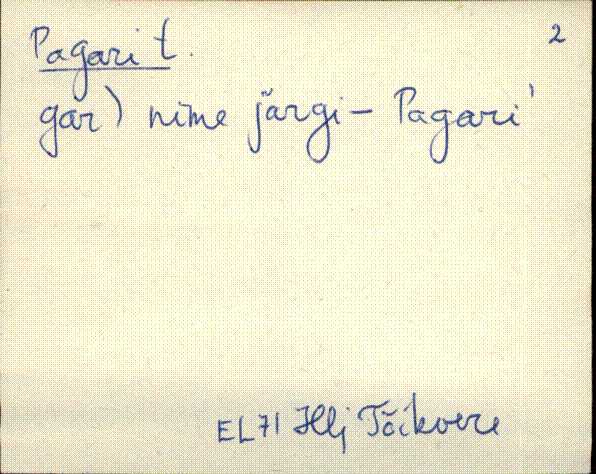 Pagari t.
2
gar) nime järgi - Pagari'
EL 71 Hlj Tõikvere